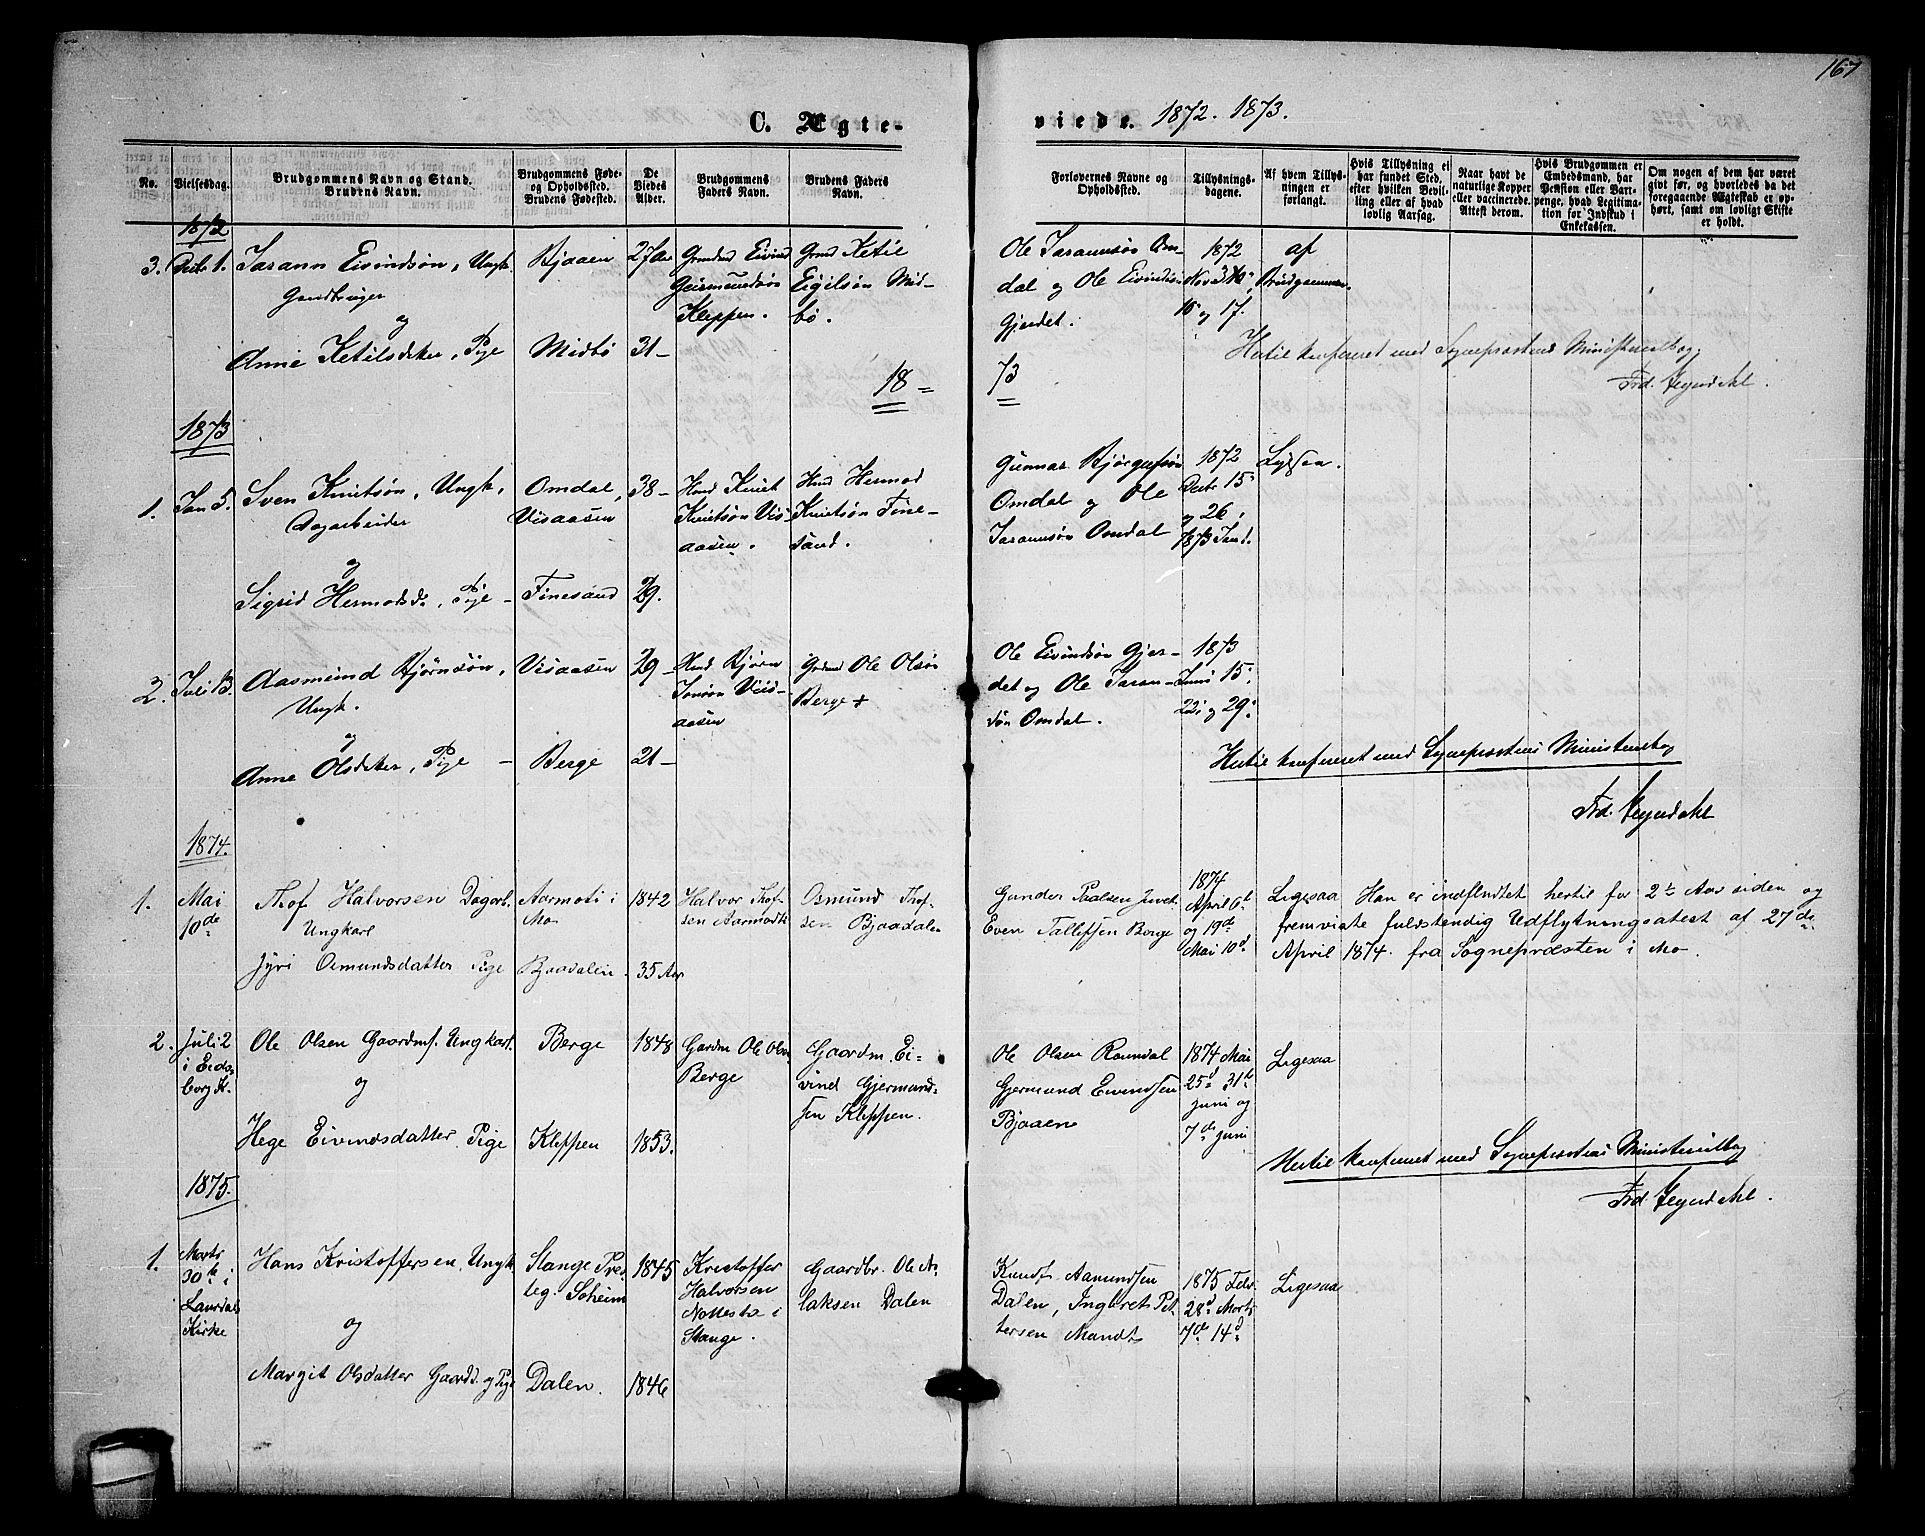 167
C. Ægte-
viede. 1872. 1873.
No.
Vielsesdag.
Brudgommens Navn og Stand.
Brudens Navn.
Brudgommens Føde-
og Opholdsted.
Brudens Fødested.
De
Viedes
Alder.
Brudgommens
Faders Navn.
Brudens Faders
Navn.
Forlovernes Navne og
Opholdsted.
Tillysnings-
dagene.
Af hvem Tillys-
ningen er
forlangt.
Hvis Tillysning ei
har fundet Sted,
efter hvilken Bevil-
ling eller af hvad
lovlig Aarsag.
Naar havt de
naturlige Kopper
eller vaccinerede.
Attest derom.
Hvis Brudgommen er
Embedsmand, har
Pension eller Var-
penge, hvad Legitima-
tion for Indskud i
Enkekassen.
Om nogen af dem har været
givt før, og hvorledes da det
foregaaende Ægteskab er op-
hørt, samt om lovligt Skifte
er holdt.
1872
3. Decbr 1.
Tarann Eivindsøn, Ungk.
og
Anne Ketilsdtter, Pige
Bjaaen
Midbö
27
31 -
Eivind
Geirmundsøn
Kleppen.
Ketil
Eigilsøn Mid-
bö.
Ole Taraunsøn Om-
dal og Ole Eivindsøn
Gjerdet.
1872
Novr 3die
10 og 17.
af
Brudgommen.
Hertil konfereret med Sognepræstens Ministerialbog
Frd.
18 = 73
1873
1. Jan 5.
Sven Knutsøn, Ungk,
Dagarbeider
og
Sigrid Hermodsd., Pige -
Omdal,
Visaasen
Finesand
38 -
29.
Knut
Knutsøn Vis-
aasen.
Hermod
Knutsøn Fine-
sand.
Gunnar Bjørgufsøn
Omdal og Ole
Taraunsøn Omdal
1872
Decbr 15
og 26
1873 Jan 1.
2. Juli 13.
Aasmund Bjørnsøn,
Ungk.
og
Anne Olsdtter, Pige -
Visaasen
Berge
29 -
21 -
Bjørn
Jonsøn Viis-
aasen
Ole Olsøn
Berge +
Ole Eivindsøn Gjer-
det og Ole Taraun-
søn Omdal.
1873
Juni 15
22 og 29
Hertil konfereret med Sognepræstens Ministerialbog
Frd.
1874.
1. Mai
10de
Thof Halvorsen Dagarb.
Ungkarl
Jyri Osmundsdatter Pige
Aarmoti i
Mo
Bjaadalen
1842
35 Aar
Halvor Thof-
sen Aarmodt
Osmund Thof-
sen Bjaadalen
Gunder Paalsen Juvet
Even Tallefsen Berge
1874
April 6t
og 19de
Mai 10d
Ligesaa
Han er indflyttet hertil for 2 Aar siden og
fremviste fuldstendig Udflytningsattest af 27de
April 1874. fra Sognepræsten i Mo.
2. Juli 2
i Eids-
borg K.
Ole Olsen Gaardmf. Ungkarl.
og
Hege Eivindsdatter Pige
Berge
Kleppen
1848
1853.
Gardm Ole Olsen
Berge
Gaardm. Ei-
vind Gjermund-
sen Kleppen.
Ole Olsen Ramdal
Gjermund Eivindsen
Bjaaen
1874 Mai
25d 31te
juni og
7de juni
Ligesaa
Hertil konfereret med Sognepræstens Ministerialbog
Frd.
1875.
1. Marts
30te i
Laurdals
Kirke
Hans Kristoffersen, Ungk.
og
Margit Olsdatter Gaardd. og Pige
Stange Præ-
steg.
Dalen.
1845
1846
Kristoffer
Halvorsen
i
Stange.
Gaardbr. Ole As-
laksen Dalen
Knudt Aamundsen
Dalen, Ingbret Pet-
tersen Mandt
1875 Febr
28d Marts
7de 14d
Ligesaa